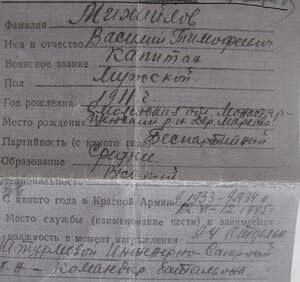 Фамилия Михайлов
Имя и отчество Василий Тимофеевич
Воинское звание Капитан
Пол Мужской
Год рождения 1911 г.
Смоленская обл. Монастыр-
Место рождения щинский р-н дер. Марково
Партийность (с какого года) Беспартийный
Образование Средне.
Национальность Русский
С какого года в Красной Армии 1933-1934 и
Место службы (наименование части) и занимаемая
должность в момент награждения Отдельн
Штурмовой Инженерно-Саперный
б-н - Командир батальона.